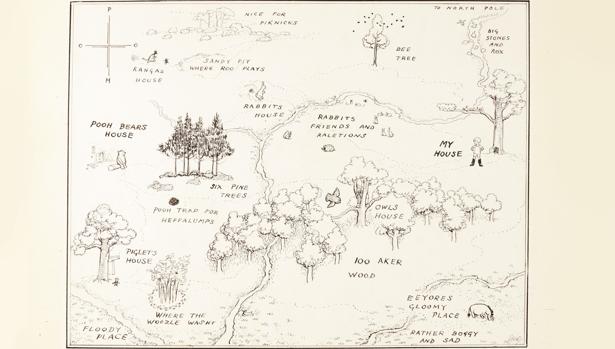 TO NORTH POLE
P
NICE FOR
PIKNICKS
BIG
STONES
AND
ROX
BEE
TREE
SANDY PIT
WHERE ROO PLAYS
KANGAS
HOUSE
H
RABBITS
HOUSE
RABBITS
FRIENDS AND
RALETIONS
POOH BEARS
HOUSE
MY
HOUSE
SIX PINE
TREES
POOH TRAP FOR
HEFFALUMPS
OWLS
HOUSE
PIGLETS
HOUSE
100 AKER
WOOD
EEYORES
GLOOMY
PLACE
WHERE THE
WOOZLE WASNT
FLOODY
PLACE
RATHER BOGGY
AND SAD